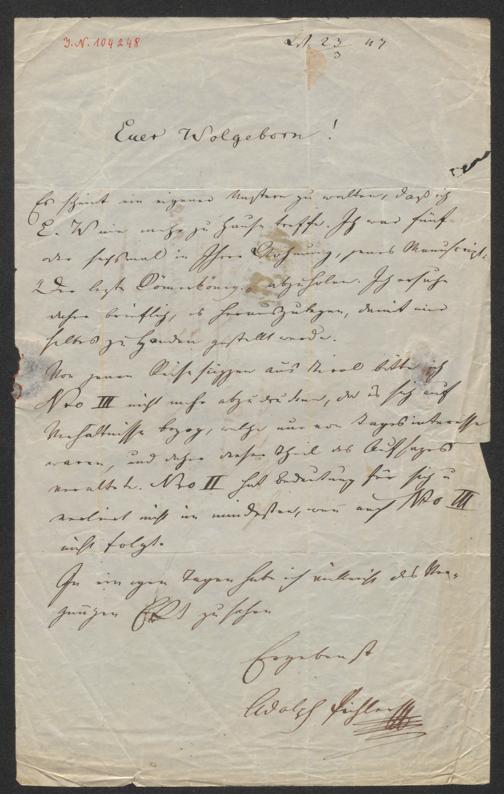 J. N. 104248
23/3 47
Euer Wolgeborn!
Es scheint ein eigener Unstern zu walten, daß ich
E. W nie mehr zu Hause treffe. Ich war fünf
oder sechsmal in Ihrer Wohnung, jenes Manuscript:
Der letzte Dömenkönig, abzuholen. Ich ersuche
daher brieflich, es herauszulegen, damit mir
selbes zu Handen gestellt werde.
Von jenen Reiseskizzen aus Tirol bitte ich
Nro III nicht mehr abzudrucken, da es sich auf
Verhältnisse bezog, welche nur von Tagesinteresse
waren, und daher dieser Theil des Aufsatzes
veraltete. Nro II hat Bedeutung für sich u
verliert nicht im mindesten, wenn auch Nro III
nicht folgt.
In einigen Tagen habe ich vielleicht das Ver-
gnügen zu sehen
Ergebenst
Adolph Pichler